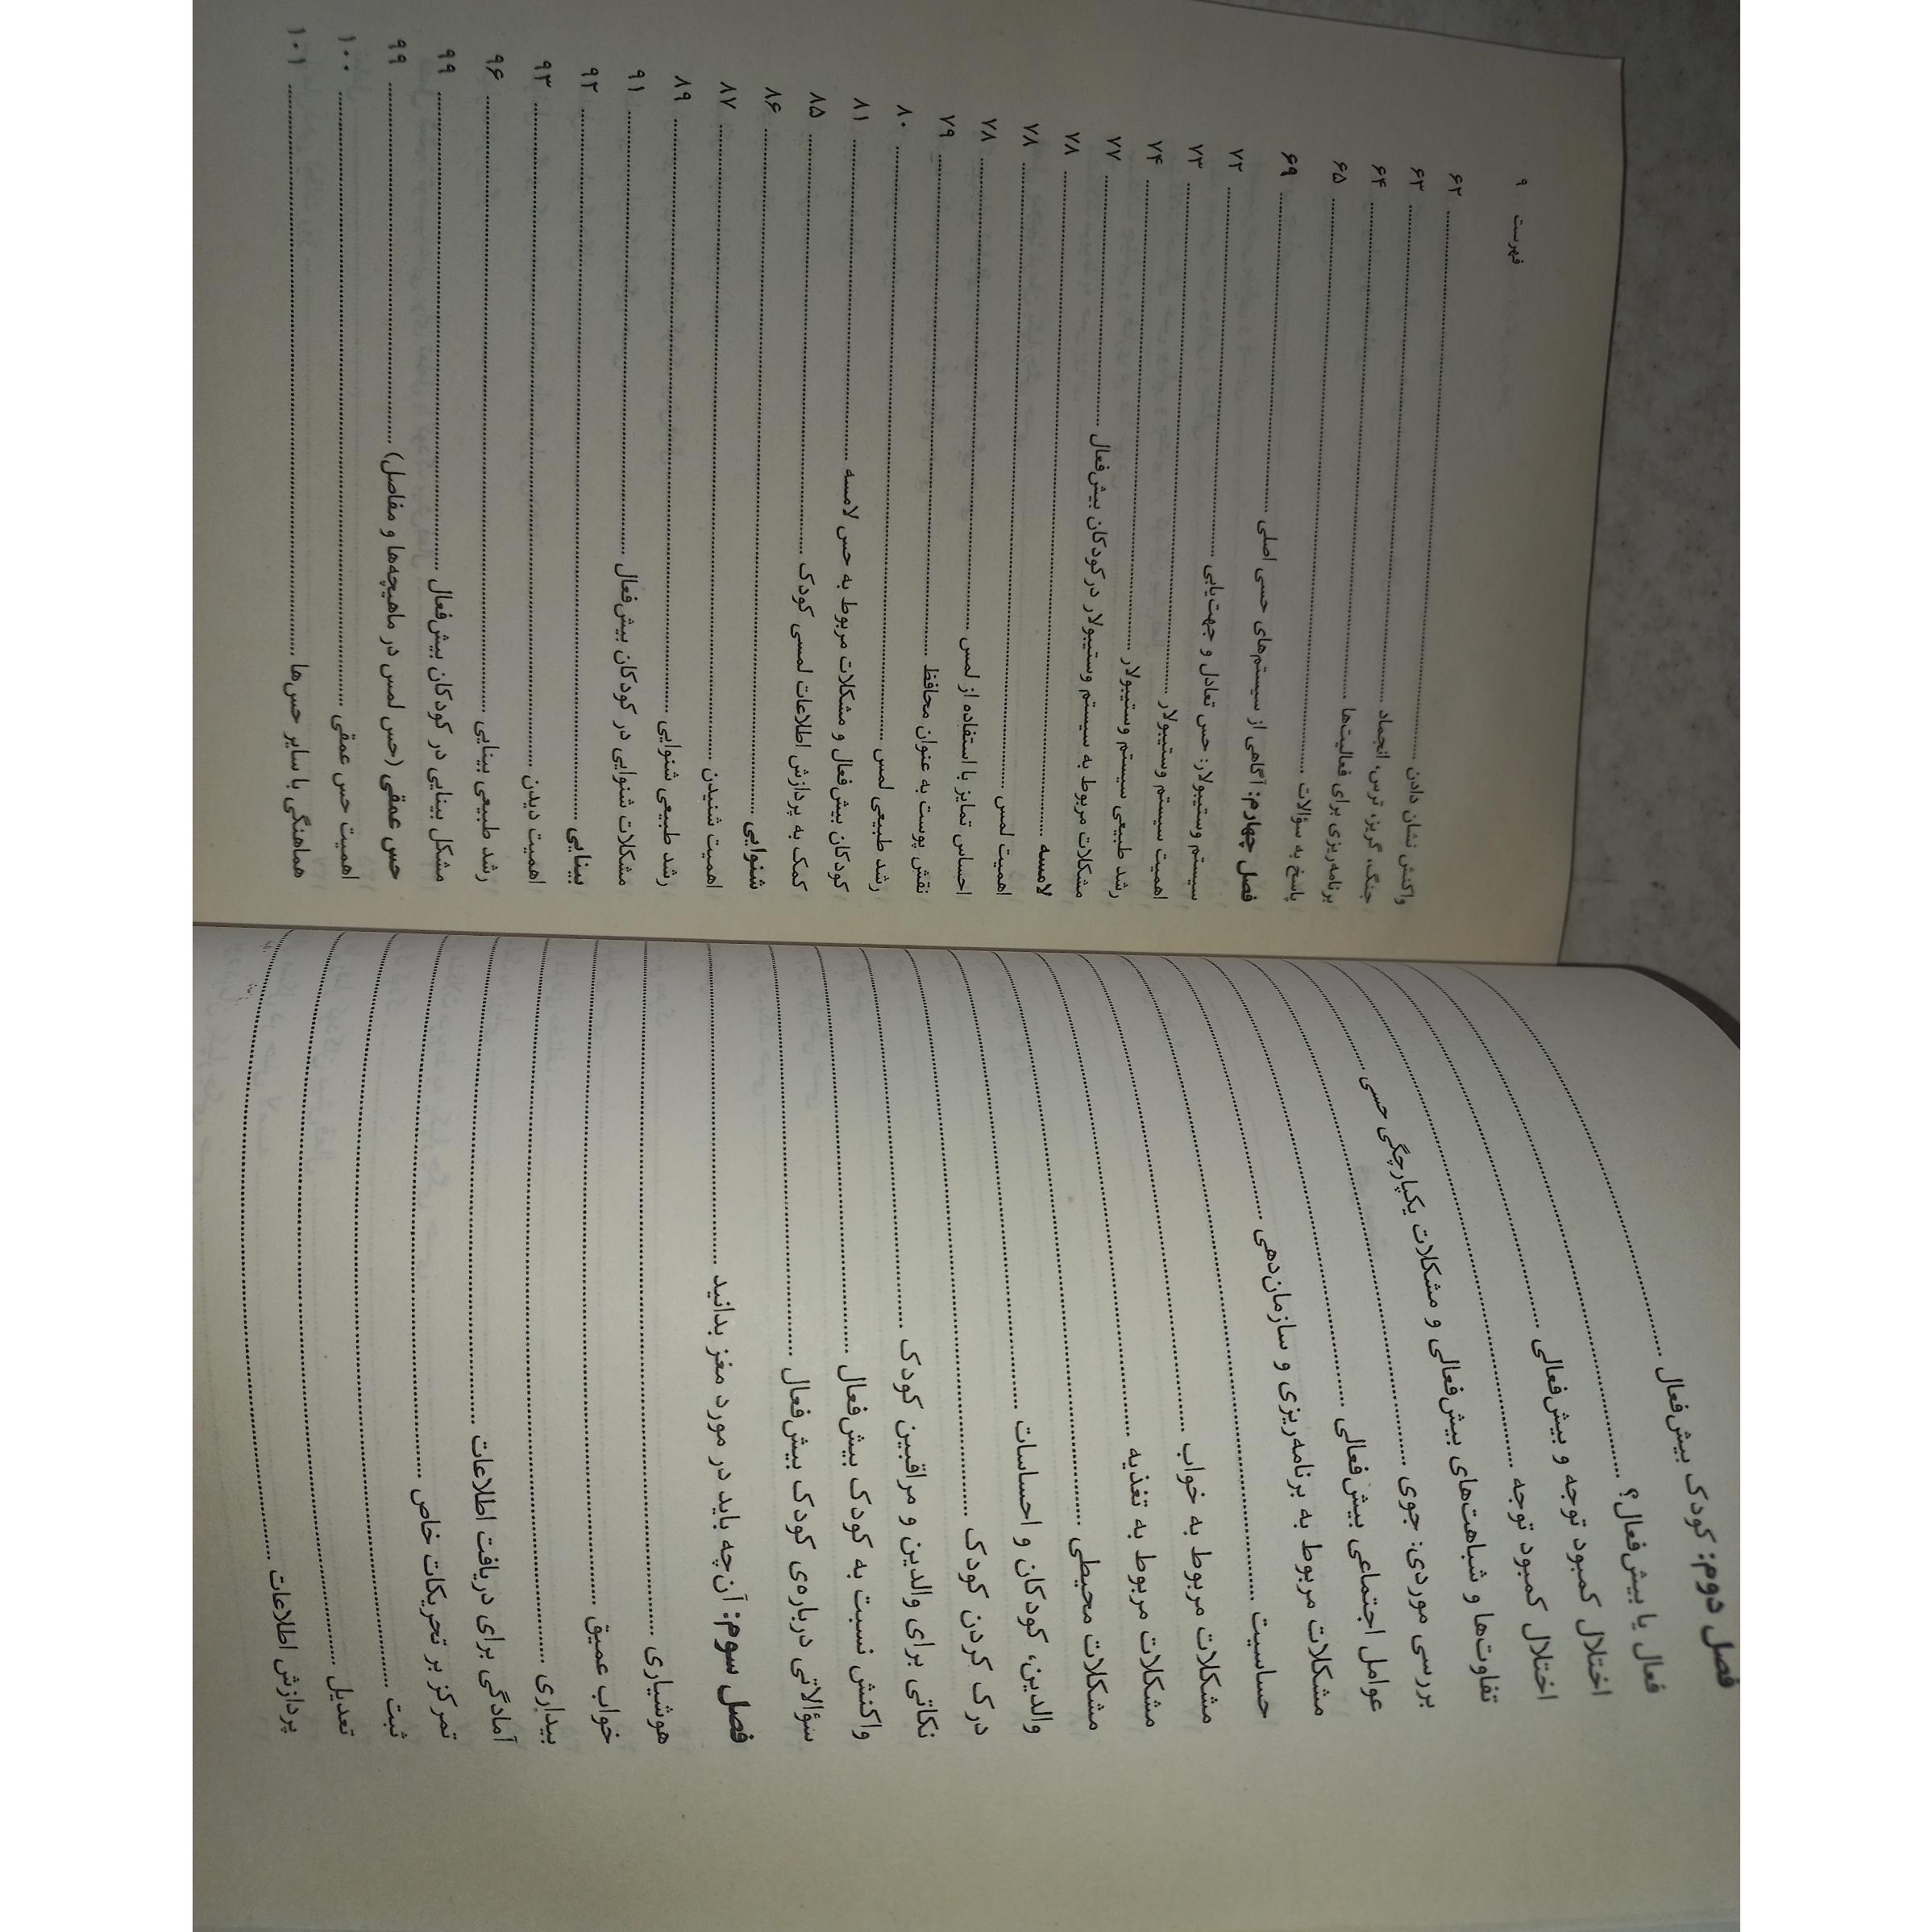 فصل دوم: کودک بیش‌فعال
فعال یا بیش‌فعال؟
اختلال کمبود توجه و بیش‌فعالی
اختلال کمبود توجه
تفاوت‌ها و شباهت‌های بیش‌فعالی و مشکلات یکپارچگی حسی
بررسی موردی: جوی
عوامل اجتماعی بیش‌فعالی
مشکلات مربوط به برنامه‌ریزی و سازمان‌دهی
حساسیت
مشکلات مربوط به خواب
مشکلات مربوط به تغذیه
مشکلات محیطی
والدین، کودکان و احساسات
درک کردن کودک
نکاتی برای والدین و مراقبین کودک
واکنش نسبت به کودک بیش‌فعال
سؤالاتی درباره‌ی کودک بیش‌فعال
فصل سوم: آن‌چه باید در مورد مغز بدانید
هوشیاری
خواب عمیق
بیداری
آمادگی برای دریافت اطلاعات
تمرکز بر تحریکات خاص
ثبت
تعدیل
پردازش اطلاعات
فهرست ۹
واکنش نشان دادن ۶۲
جنگ، گریز، ترس، انجماد ۶۳
برنامه‌ریزی برای فعالیت‌ها ۶۴
پاسخ به سؤالات ۶۵
فصل چهارم: آگاهی از سیستم‌های حسی اصلی ۶۹
سیستم وستیبولار: حس تعادل و جهت‌یابی ۷۲
اهمیت سیستم وستیبولار ۷۳
رشد طبیعی سیستم وستیبولار ۷۴
مشکلات مربوط به سیستم وستیبولار در کودکان بیش‌فعال ۷۷
لامسه ۷۸
اهمیت لمس ۷۸
احساس تمایز با استفاده از لمس ۷۸
نقش پوست به عنوان محافظ ۷۹
رشد طبیعی لمس ۸۰
کودکان بیش‌فعال و مشکلات مربوط به حس لامسه ۸۱
کمک به پردازش اطلاعات لمسی کودک ۸۵
شنوایی ۸۶
اهمیت شنیدن ۸۷
رشد طبیعی شنوایی ۸۹
مشکلات شنوایی در کودکان بیش‌فعال ۹۱
بینایی ۹۲
اهمیت دیدن ۹۳
رشد طبیعی بینایی ۹۶
مشکل بینایی در کودکان بیش‌فعال ۹۹
حس عمقی (حس لمس در ماهیچه‌ها و مفاصل) ۹۹
اهمیت حس عمقی ۱۰۰
هماهنگی با سایر حس‌ها ۱۰۱